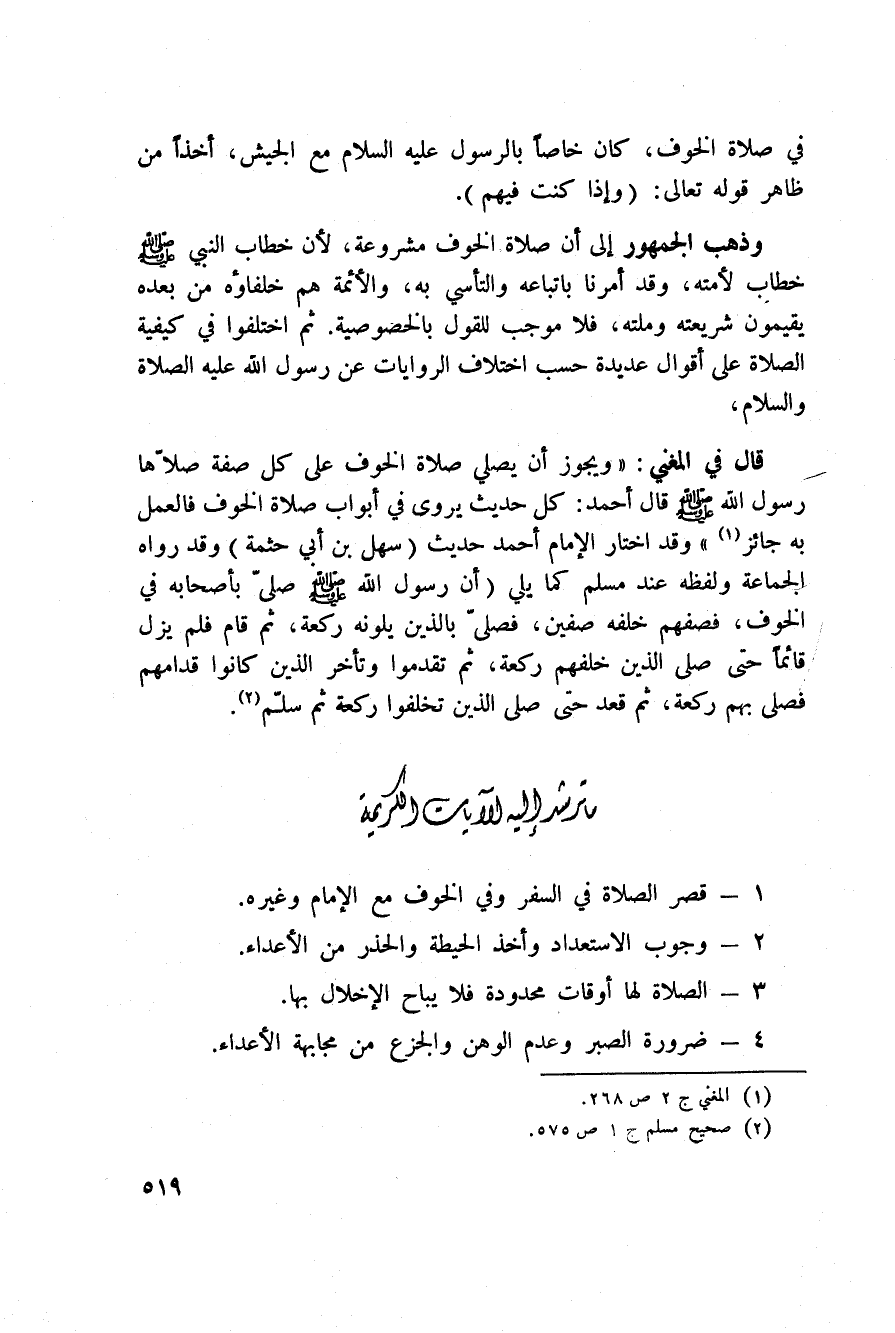 في صلاة الخوف، كان خاصاً بالرسول عليه السلام مع الجيش، أخذاً من
ظاهر قوله تعالى: (وإذا كنت فيهم).
وذهب الجمهور إلى أن صلاة الخوف مشروعة، لأن خطاب النبي ﷺ
خطاب لأمته، وقد أمرنا باتباعه والتأسي به، والأئمة هم خلفاؤه من بعده
يقيمون شريعته وملته، فلا موجب للقول بالخصوصية. ثم اختلفوا في كيفية
الصلاة على أقوال عديدة حسب اختلاف الروايات عن رسول الله عليه الصلاة
والسلام،
قال في المغني: «ويجوز أن يصلي صلاة الخوف على كل صفة صلاّها
رسول الله ﷺ قال أحمد: كل حديث يروى في أبواب صلاة الخوف فالعمل
به جائز(١)» وقد اختار الإمام أحمد حديث (سهل بن أبي حثمة) وقد رواه
الجماعة ولفظه عند مسلم كما يلي (أن رسول الله ﷺ صلىّ بأصحابه في
الخوف، فصفهم خلفه صفين، فصلىّ بالذين يلونه ركعة، ثم قام فلم يزل
قائماً حتى صلى الذين خلفهم ركعة، ثم تقدموا وتأخر الذين كانوا قدامهم
فصلى بهم ركعة، ثم قعد حتى صلى الذين تخلفوا ركعة ثم سلّم(٢).
ما ترشد إليه الآيات الكريمة
١ – قصر الصلاة في السفر وفي الخوف مع الإمام وغيره.
٢ – وجوب الاستعداد وأخذ الحيطة والحذر من الأعداء.
٣ – الصلاة لها أوقات محدودة فلا يباح الإخلال بها.
٤ – ضرورة الصبر وعدم الوهن والجزع من مجابهة الأعداء.
(١) المغني ج ٢ ص ٢٦٨.
(٢) صحيح مسلم ج ١ ص ٥٧٥.
٥١٩